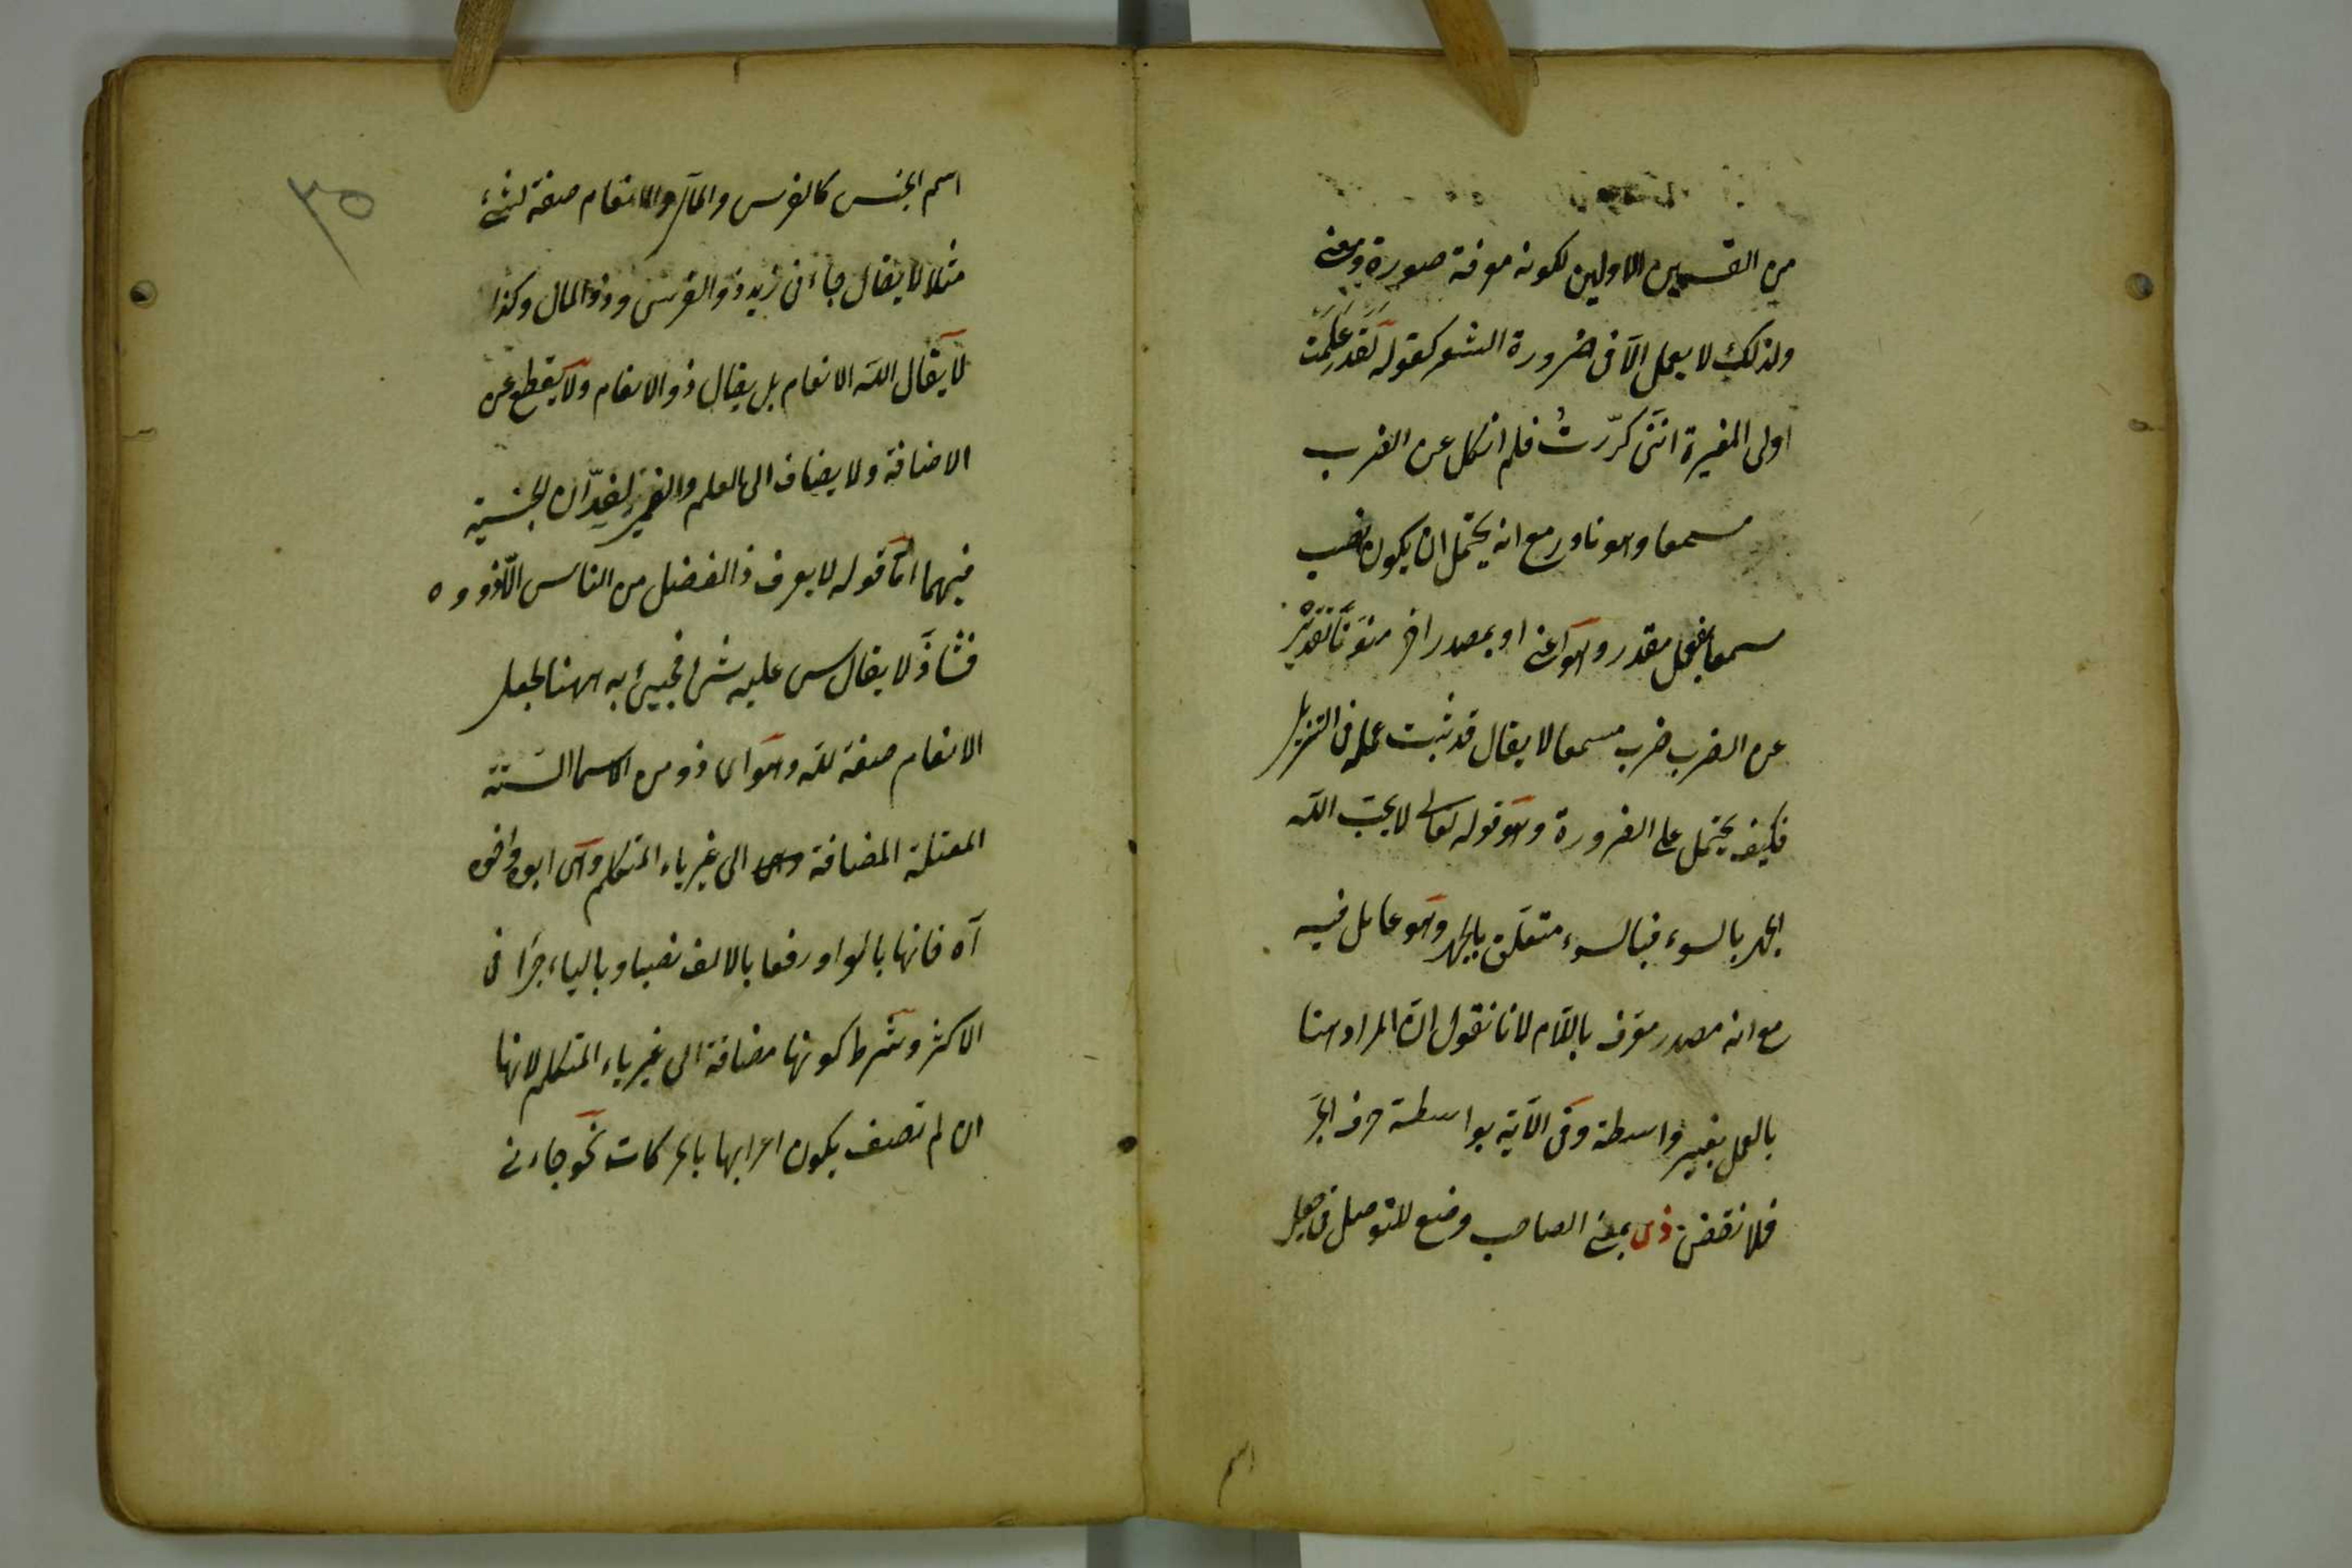 من القسمين الاولين لكونه معرفة صورة ومعنى
ولذلك لا يعمل الّا فى ضرورة الشعر كقوله لقد علمت
اولى المغيرة اننى كرّرت فلم انكل عن الضرب
مسمعا وهو نادر مع انه يحتمل ان يكون نصب
مسمعا بفعل مقدر وهو اعنى او بمصدر اخر منوّنا تقديره
عن الضرب ضرب مسمعا لا يقال قد ثبت عمله فى التنزيل
فكيف يحتمل على الضرورة وهو قوله تعالى لا يحبّ الله
الجهر بالسوء فبالسوء متعلّق بالجهر وهو عامل فيه
مع انه مصدر معرّف باللّام لانا نقول انّ المراد هنا
بالعمل بغير واسطة وفى الآية بواسطة حرف الجرّ
فلا نقض ذى بمعنى الصاحب وضع للتوصل فى جعل
اسم
٣٥
اسم الجنس كالفرس والمال والانعام صفة لشئ
مثلا لا يقال جاءنى زيد ذو الفرس وذو المال وكذا
لا يقال الله الانعام بل يقال ذو الانعام ولا يقطع عن
الاضافة ولا يضاف الى العلم والضمير لفقدان الجنسية
فيهما امّا قوله لا يعرف ذا الفضل من الناس الّا ذووه
فشاذّ لا يقال ليس عليه شئ فجيئ به ههنا لجعل
الانعام صفة لله وهو اى ذو من الاسما الستة
المعتلة المضافة الى غير ياء المتكلم وهى ابوه واخوه
آه فانها بالواو رفعا بالالف نصبا وبالياء جرّا فى
الاكثر وشرط كونها مضافة الى غير ياء المتكلم لانها
ان لم تضف يكون اعرابها بالحركات نحو جاءنى